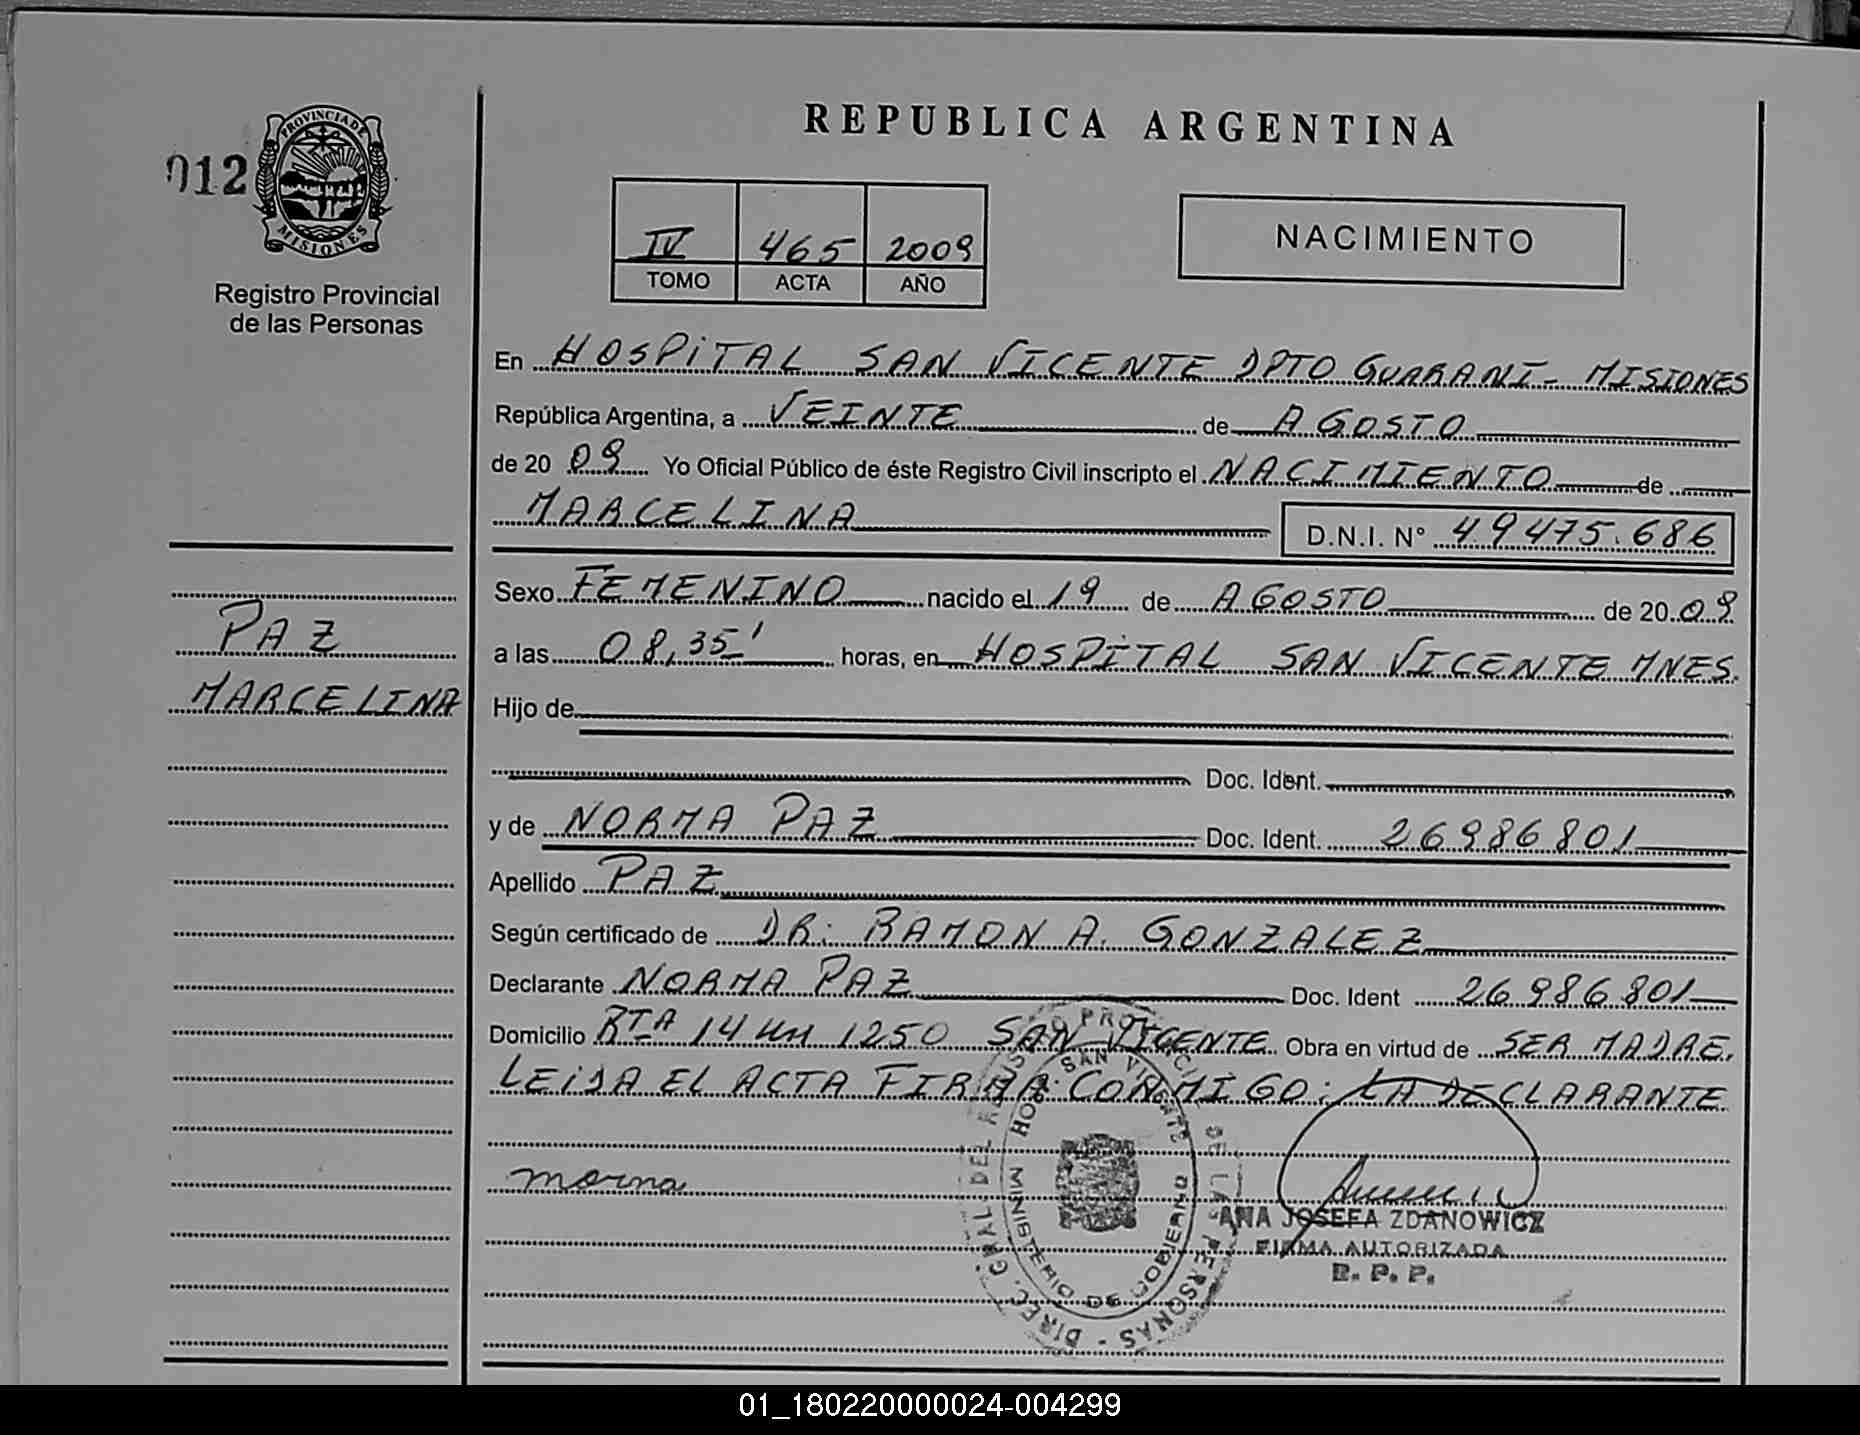 REPUBLICA ARGENTINA
012
PROVINCIA DE
MISIONES
Registro Provincial
de las Personas
IV 465 2009
TOMO ACTA AÑO
NACIMIENTO
En HOSPITAL SAN VICENTE DPTO GUARANI - MISIONES
República Argentina, a VEINTE de AGOSTO
de 20 09 Yo Oficial Público de éste Registro Civil inscripto el NACIMIENTO de
MARCELINA D.N.I. N° 49475.686
Sexo FEMENINO nacido el 19 de AGOSTO de 20 09
a las 08,35' horas, en HOSPITAL SAN VICENTE MNES.
Hijo de
Doc. Ident.
y de NORMA PAZ Doc. Ident. 26986801
Apellido PAZ
Según certificado de DR: RAMON A. GONZALEZ
Declarante NORMA PAZ Doc. Ident 26986801
Domicilio RTA 14 Km 1250 SAN VICENTE Obra en virtud de SER MADRE.
LEIDA EL ACTA FIRMA CONMIGO: LA DECLARANTE
PAZ
MARCELINA
morma
DIREC. GRAL. DEL REGISTRO PROVINCIAL DE LAS PERSONAS -
HOSP. SAN VICENTE
MINISTERIO DE GOBIERNO
ANA JOSEFA ZDANOWICZ
FIRMA AUTORIZADA
R. P. P.
01_180220000024-004299